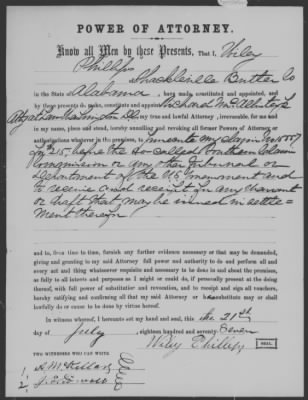 POWER OF ATTORNEY.
Know all Men by these Presents, That I, Wiley
Phillips Shackleville Butler Co
in the State of Alabama, have made, constituted and appointed, and
by these presents do make, constitute and appoint Richard McAllister
Atty at Law Washington D.C. my true and lawful Attorney, irrevocable, for me and
in my name, place and stead, hereby annulling and revoking all former Powers of Attorney or
authorizations whatever in the premises, to prosecute my claim No
before the so called Southern Claims
Commission or any other Tribunal or
Department of the U.S. and
to receive and receipt for any Warrant
or draft that may be issued in settle=
ment therein
and to, from time to time, furnish any further evidence necessary or that may be demanded,
giving and granting to my said Attorney full power and authority to do and perform all and
every act and thing whatsoever requisite and necessary to be done in and about the premises,
as fully to all intents and purposes as I might or could do, if personally present at the doing
thereof, with full power of substitution and revocation, and to receipt and sign all vouchers,
hereby ratifying and confirming all that my said Attorney or his substitute may or shall
lawfully do or cause to be done by virtue hereof.
In witness whereof, I hereunto set my hand and seal, this the 21st
day of July, eighteen hundred and seventy Seven
Wiley Phillips SEAL.
TWO WITNESSES WHO CAN WRITE
1,
2,